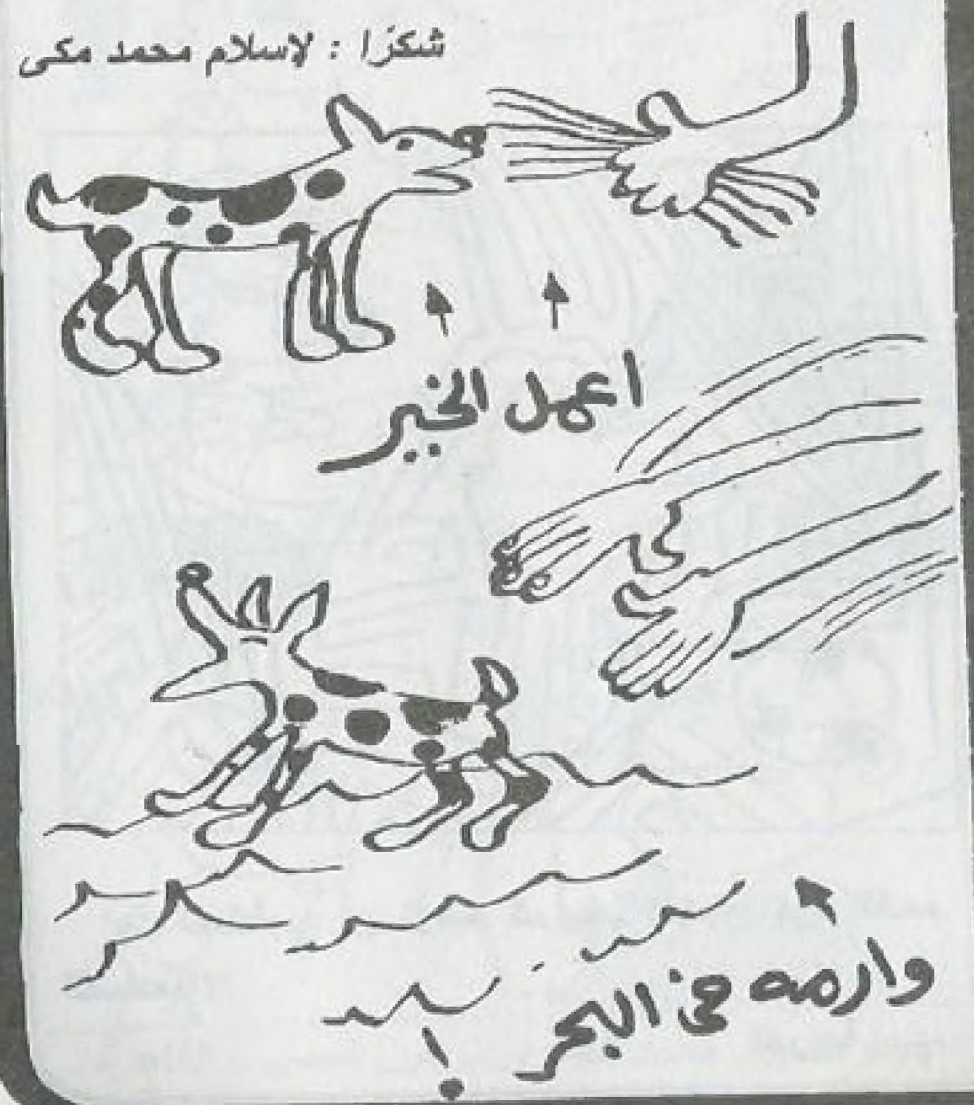 شكرًا : لإسلام محمد مكى
اعمل الخير
وارمه فى البحر
!